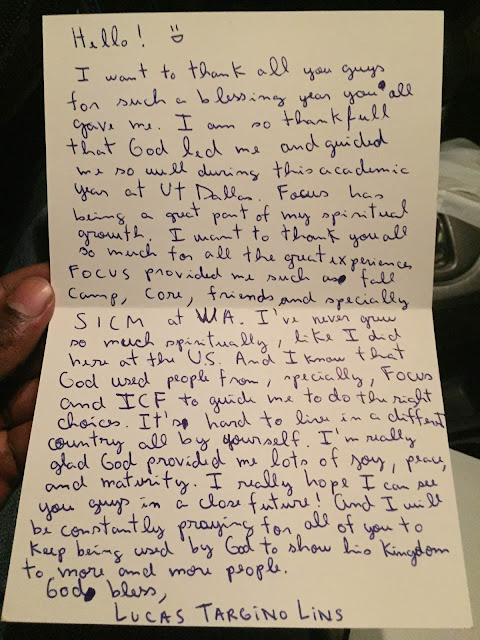 Hello! =D
I want to thank all you guys
for such a blessing year you all
gave me. I am so thankfull
that God led me and guided
me so well during this academic
year at UT Dallas. Focus has
being a great part of my spiritual
growth. I want to thank you all
so much for all the great experiences
FOCUS provided me such as fall
camp, core, friends and specially
SICM at WA. I've never grew
so much spiritually, like I did
here at the US. And I know that
God used people from, specially, FOCUS
and ICF to guide me to do the right
choices. It's hard to live in a different
country all by yourself. I'm really
glad God provided me lots of joy, peace,
and maturity. I really hope I can see
you guys in a close future! And I will
be constantly praying for all of you to
keep being used by God to show his Kingdom
to more and more people.
God bless,
LUCAS TARGINO LINS